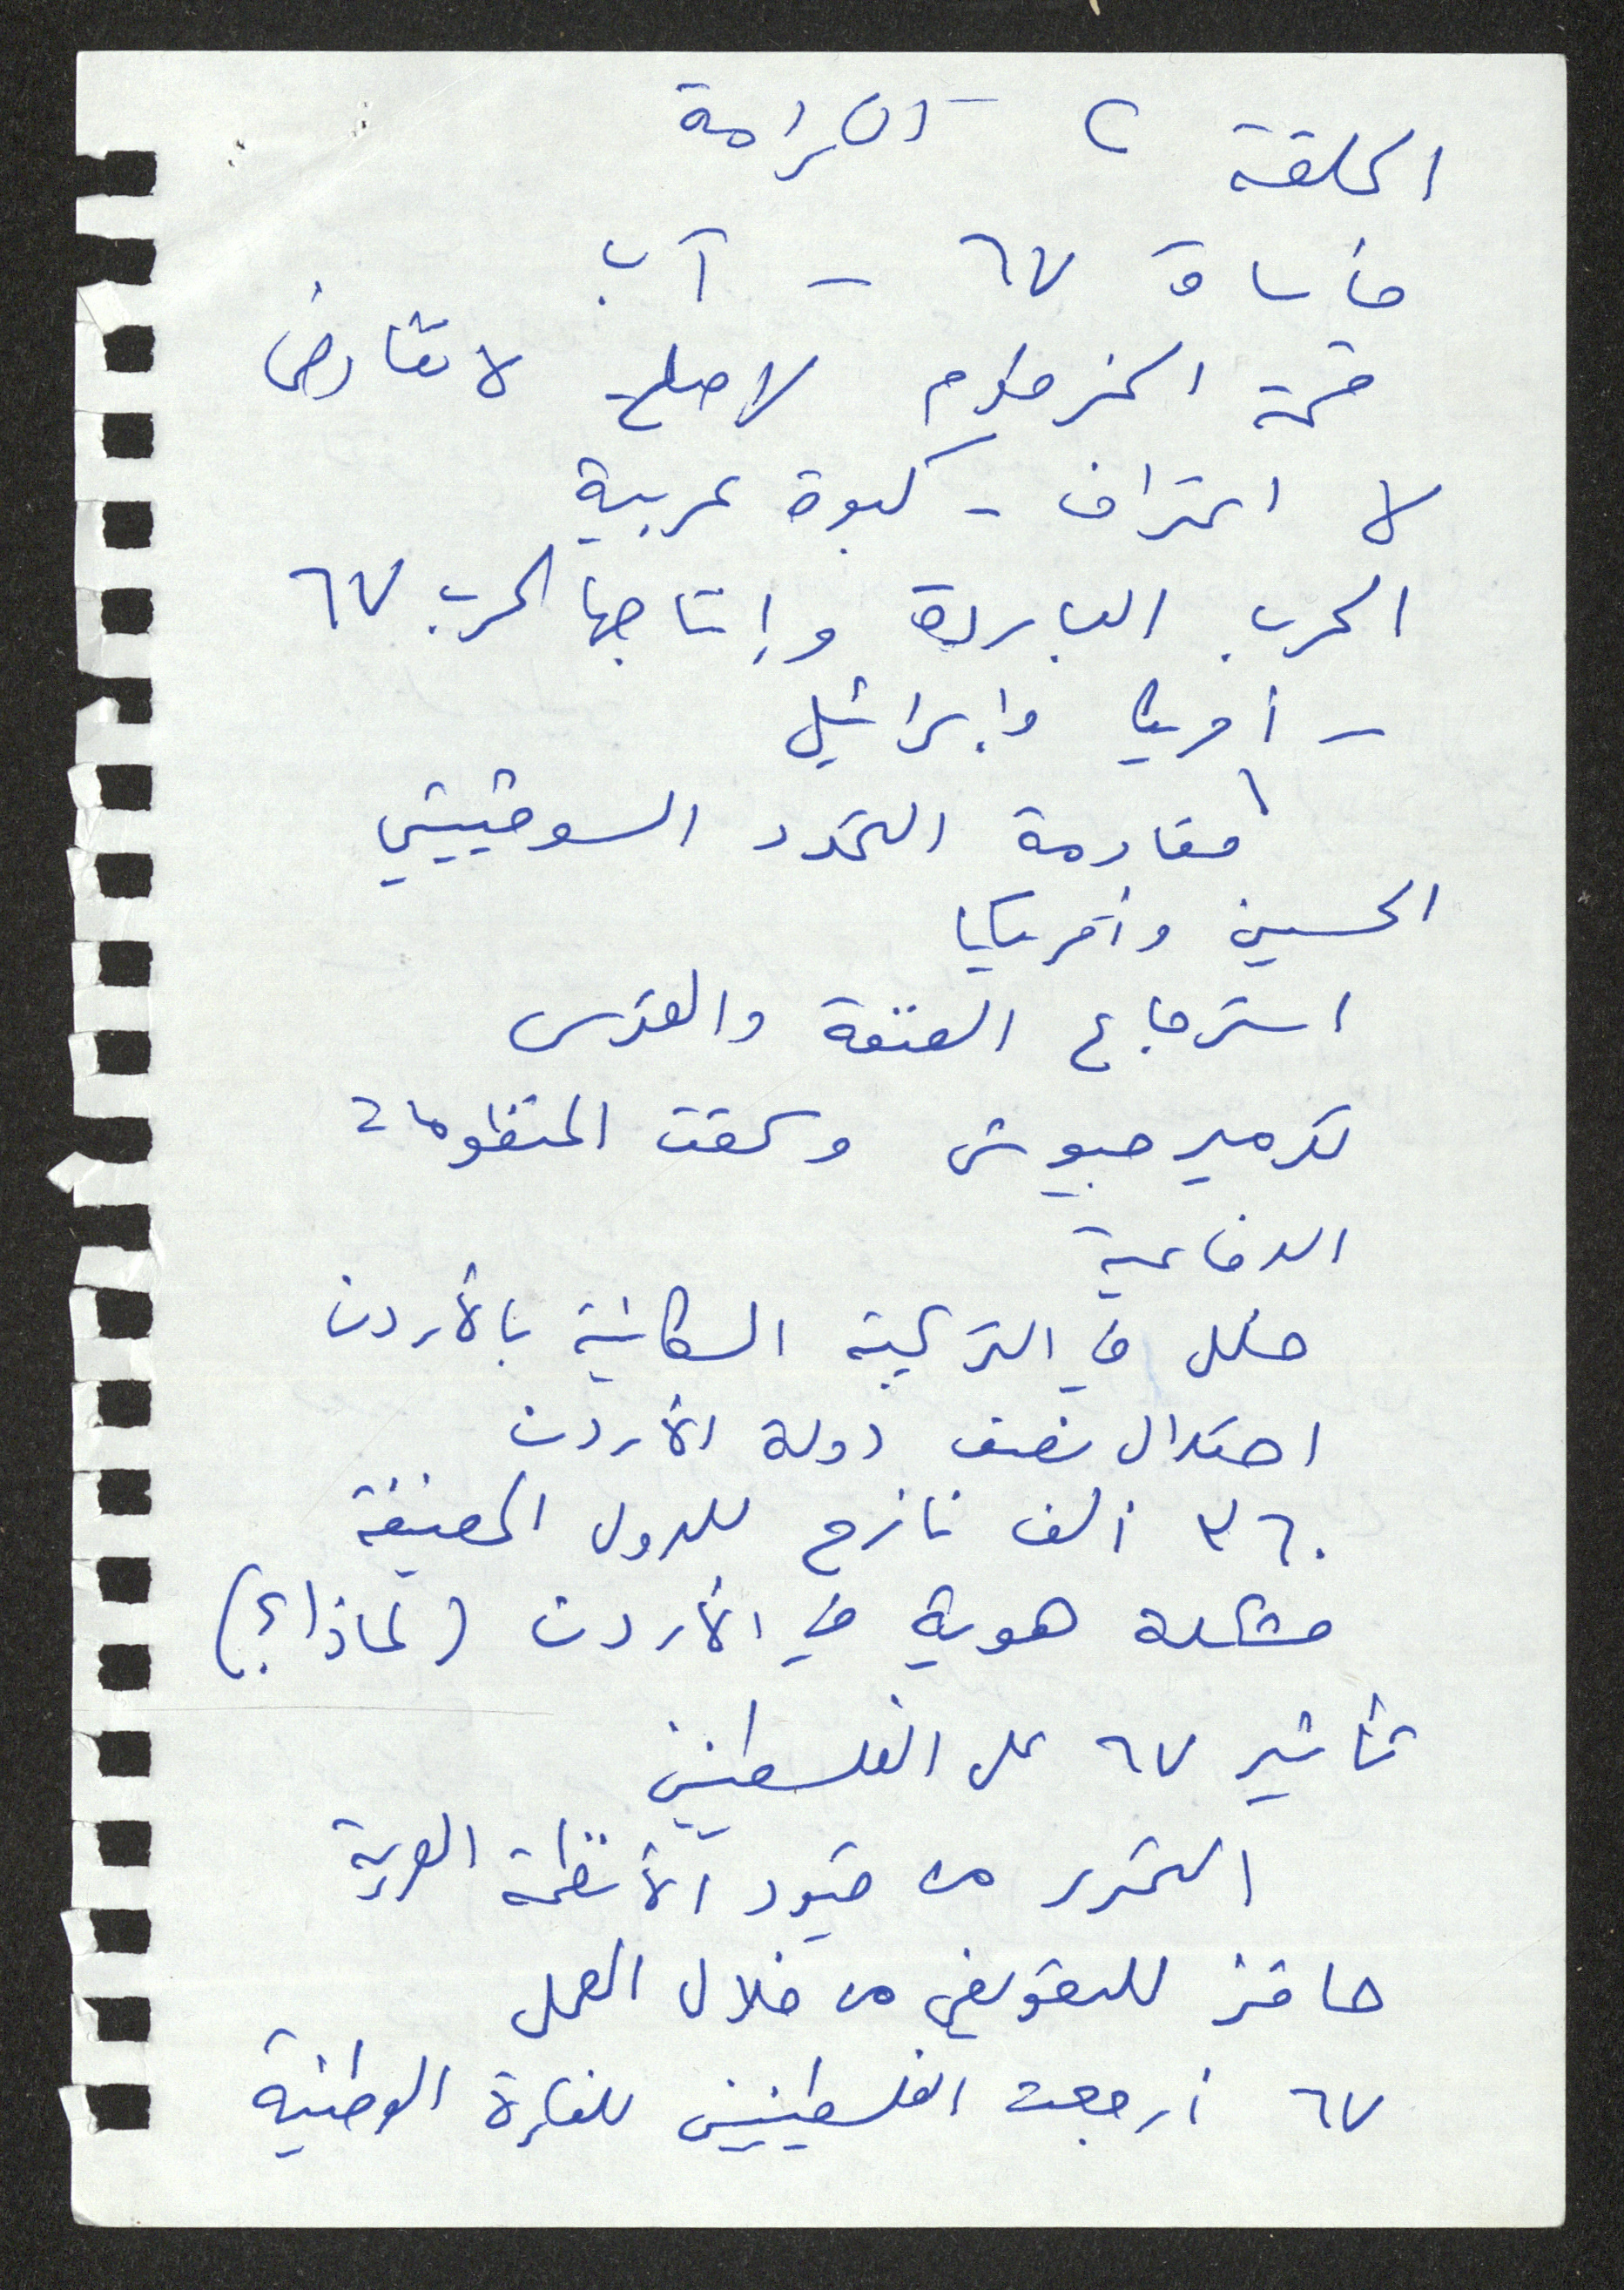 الحلقة ٢ - الكرامة
مأساة ٦٧ - آب
قمة الخرطوم لا صلح لا تفاوض
لا اعتراف - كبوة عربية
الحرب الباردة وإنتاجها لحرب ٦٧
- أمريكا وإسرائيل
مقاومة التمدد السوفييتي
الحسين وأمريكا
استرجاع الضفة والقدس
تدمير جيوش وسحقت المنظومات
الدفاعية
خلل في التركيبة السكانية بالأردن
احتلال نصف دولة الأردن
٣٦٠ ألف نازح للدول المضيفة
مشكلة هوية في الأردن (لماذا؟)
تأثير ٦٧ على الفلسطينيين
التحرر من قيود الأنظمة العربية
حافز للتعويض من خلال العمل
٦٧ أرجعت الفلسطينيين للفكرة الوطنية